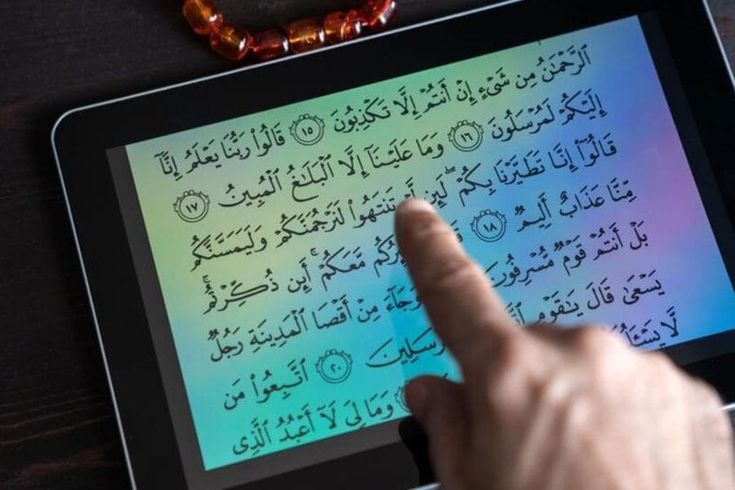 الرَّحْمَٰنُ مِن شَىْءٍ إِنْ أَنتُمْ إِلَّا تَكْذِبُونَ ١٥ قَالُوا۟ رَبُّنَا يَعْلَمُ إِنَّآ
إِلَيْكُمْ لَمُرْسَلُونَ ١٦ وَمَا عَلَيْنَآ إِلَّا الْبَلَٰغُ الْمُبِينُ ١٧
قَالُوٓا۟ إِنَّا تَطَيَّرْنَا بِكُمْ ۖ لَئِن تَنتَهُوا۟ لَنَرْجُمَنَّكُمْ وَلَيَمَسَّنَّكُم
مِّنَّا عَذَابٌ أَلِيمٌ ١٨ مَّعَكُمْ ۚ أَئِن ذُكِّرْتُم ۚ
بَلْ أَنتُمْ قَوْمٌ مُّسْرِفُونَ وَجَآءَ مِنْ أَقْصَا الْمَدِينَةِ رَجُلٌ
يَسْعَىٰ قَالَ يَٰقَوْمِ ٢٠ اتَّبِعُوا۟ مَن
لَّا وَمَا لِىَ لَآ أَعْبُدُ الَّذِى